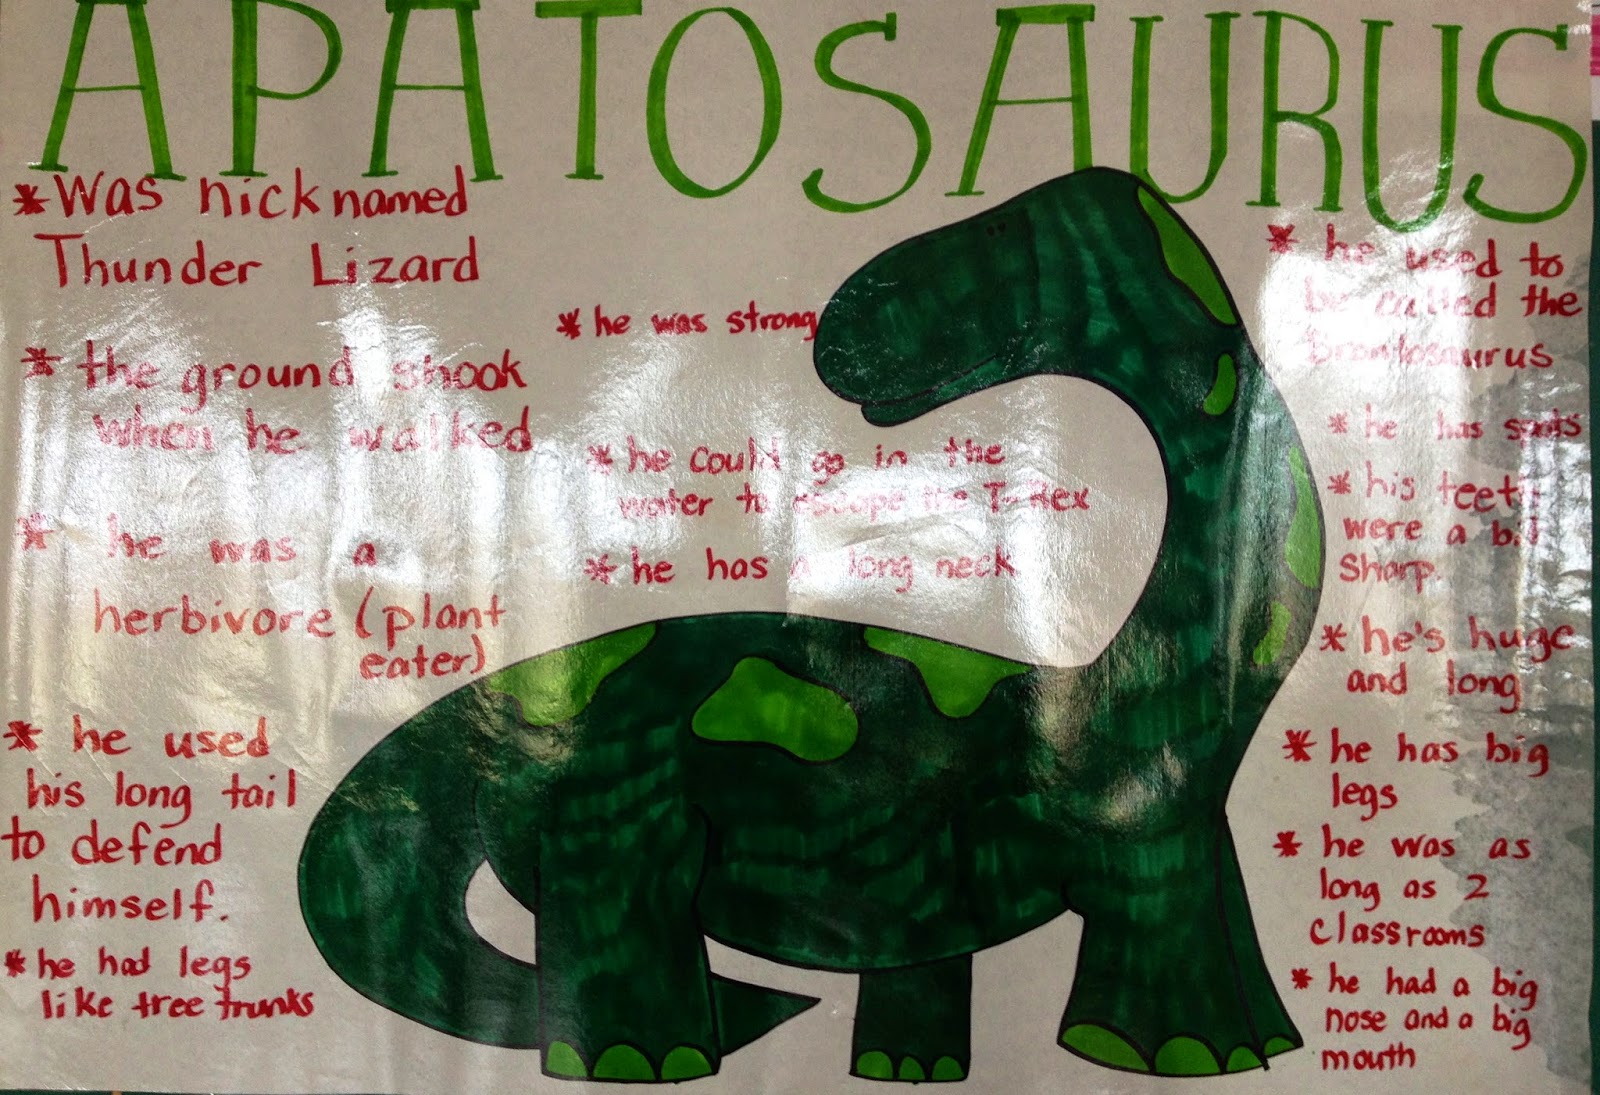 APATOSAURUS
* Was nicknamed
Thunder Lizard
* the ground shook
when he walked
* he was a
herbivore (plant
eater)
* he used
his long tail
to defend
himself.
* he had legs
like tree trunks
* he was strong
* he could go in the
water to escape the T-Rex
* he has a long neck
* he used to
be called the
Brontosaurus
* he has spots
* his teeth
were a bit
sharp.
* he's huge
and long
* he has big
legs
* he was as
long as 2
classrooms
* he had a big
nose and a big
mouth